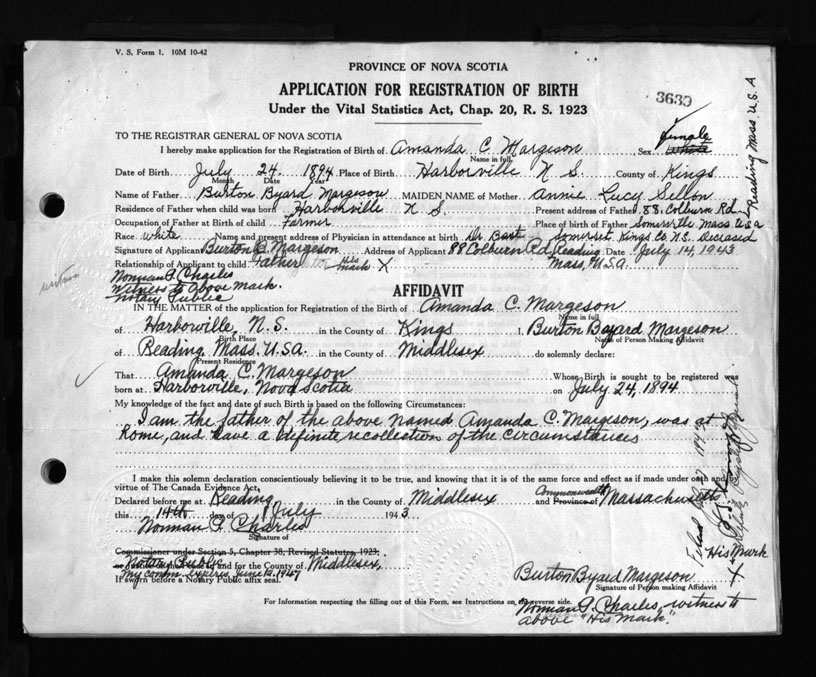 V. S. Form 1. 10M 10-42
PROVINCE OF NOVA SCOTIA
APPLICATION FOR REGISTRATION OF BIRTH
Under the Vital Statistics Act, Chap. 20, R. S. 1923
3639
TO THE REGISTRAR GENERAL OF NOVA SCOTIA
I hereby make application for the Registration of Birth of Amanda C. Margeson Sex Female White
Name in full
Date of Birth July 24. 1894 Place of Birth Harborville N S. County of Kings
Month Date Year
Name of Father Burton Byard Margeson MAIDEN NAME of Mother Annie Lucy
Residence of Father when child was born Harborville N S. Present address of Father 88. Colburn Rd Reading Mass U.S.A
Occupation of Father at Birth of child Farmer Place of birth of Father Mass USA
Race white Name and present address of Physician in attendance at birth Dr. Somerset Kings Co N.S. Deceased
Signature of Applicant Burton B. Margeson Address of Applicant 88 Colburn Rd. Reading Date July 14, 1943
Relationship of Applicant to child Father His mark X Mass, U.S.A.
Norman P. Charles
Witness to above mark.
Notary Public
AFFIDAVIT
IN THE MATTER of the application for Registration of the Birth of Amanda C. Margeson
Name in full
of Harborville, N.S. in the County of Kings I, Burton Byard Margeson
Birth Place Name of Person Making Affidavit
of Reading Mass. U.S.A. in the County of Middlesex do solemnly declare:
Present Residence
That Amanda C. Margeson Whose Birth is sought to be registered was
born at Harborville, Nova Scotia on July 24, 1894
My knowledge of the fact and date of such Birth is based on the following Circumstances:
I am the father of the above named Amanda C. Margeson, was at
home, and have a definite recollection of the circumstances
I make this solemn declaration conscientiously believing it to be true, and knowing that it is of the same force and effect as if made under oath and
virtue of The Canada Evidence Act,
Declared before me at Reading in the County of Middlesex Commonwealth and Province of Massachusetts
this 14th day of July 1943
Norman P. Charles
Signature of
Commissioner under Section 5, Chapter 38, Revised Statutes, 1923;
or Notary Public in and for the County of Middlesex,
My comm. expires June 12, 1947
If sworn before a Notary Public affix seal.
His Mark
X
Burton Byard Margeson
Signature of Person making Affidavit
For Information respecting the filling out of this Form, see Instructions on the reverse side.
Norman P. Charles, witness to
above "His Mark."